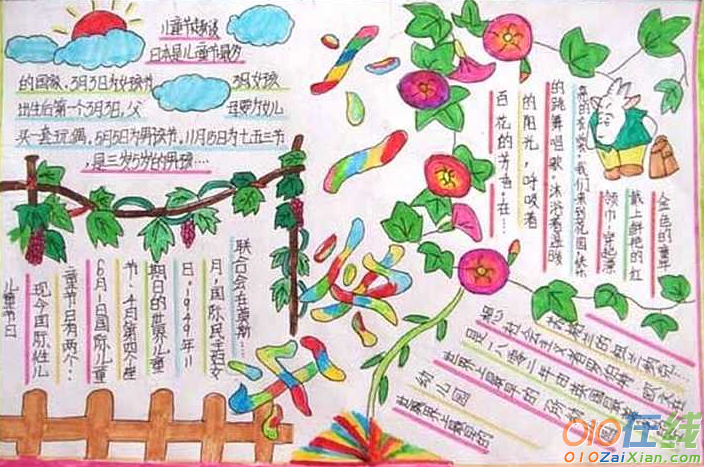 儿童节趣谈
日本是儿童节最多
的国家,3月3日为女孩节 3月女孩
出生后第一个3月3日,父 母要为女儿
买一套玩偶,5月5日为男孩节,11月15日为七五三节
,是三岁5岁的男孩…
六
一
金色的童年
戴上鲜艳的红
领巾,穿起漂
亮的衣裳,我们来到花园,快乐
的跳舞唱歌,沐浴着温暖
的阳光,呼吸着
百花的芳香,在…
儿童节日
现今国际性儿
童节日有两个:
6月1日国际儿童
节,4月第四个星
期日的世界儿童
日。1949年11
月,国际民主妇女
联合会在莫斯…
世界上最早的
幼儿园
世界上最早的幼
是一八零二年由英国
想社会主义者罗伯特·欧文在
苏格兰的纽兰纳
010在线
010ZaiXian.com